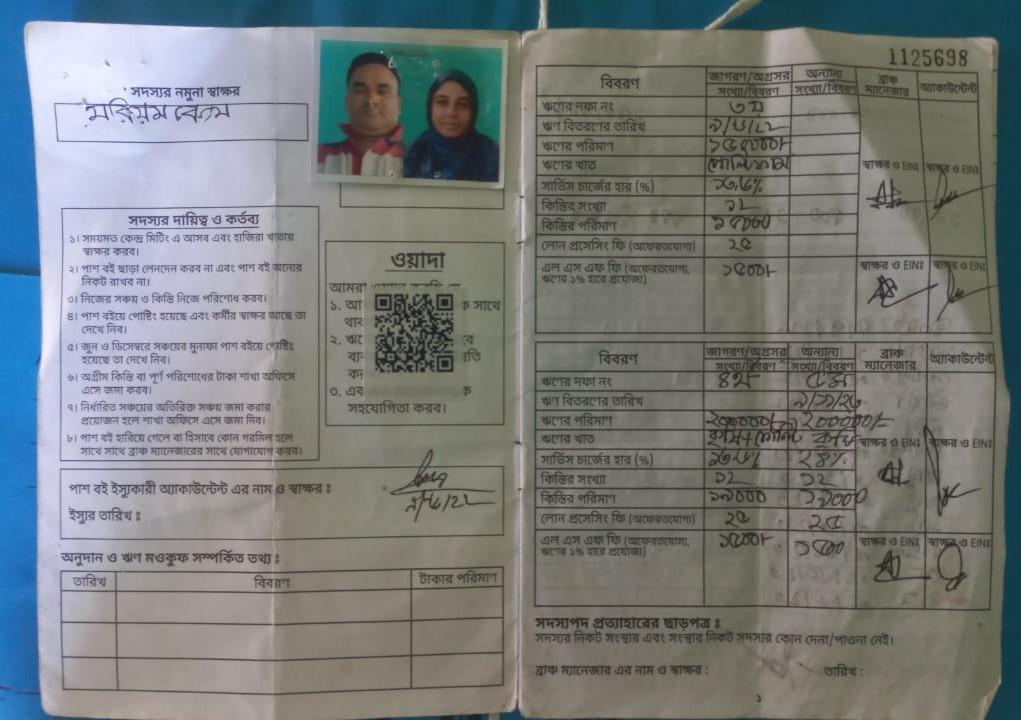 সদস্যর নমুনা স্বাক্ষর
মরিয়ম বেগম
সদস্যর দায়িত্ব ও কর্তব্য
১। সময়মত কেন্দ্র মিটিং এ আসব এবং হাজিরা খাতায়
স্বাক্ষর করব।
২। পাশ বই ছাড়া লেনদেন করব না এবং পাশ বই অন্যের
নিকট রাখব না।
৩। নিজের সঞ্চয় ও কিস্তি নিজে পরিশোধ করব।
৪। পাশ বইয়ে পোষ্টিং হয়েছে এবং কর্মীর স্বাক্ষর আছে তা
দেখে নিব।
৫। জুন ও ডিসেম্বরে সঞ্চয়ের মুনাফা পাশ বইয়ে পোষ্টিং
হয়েছে তা দেখে নিব।
৬। অগ্রীম কিস্তি বা পূর্ণ পরিশোধের টাকা শাখা অফিসে
এসে জমা করব।
৭। নির্ধারিত সঞ্চয়ের অতিরিক্ত সঞ্চয় জমা করার
প্রয়োজন হলে শাখা অফিসে এসে জমা দিব।
৮। পাশ বই হারিয়ে গেলে বা হিসাবে কোন গরমিল হলে
সাথে সাথে ব্রাঞ্চ ম্যানেজারের সাথে যোগাযোগ করব।
ওয়াদা
আমরা
১. আ ক সাথে
থাক
২. ঋণে
ব্য প্রতি
কদ
৩. এব ক
সহযোগিতা করব।
পাশ বই ইস্যুকারী অ্যাকাউন্টেন্ট এর নাম ও স্বাক্ষর ঃ
ইস্যুর তারিখ ঃ ৯/৬/২২
অনুদান ও ঋণ মওকুফ সম্পর্কিত তথ্য ঃ
তারিখ বিবরণ টাকার পরিমাণ
1125698
বিবরণ জাগরণ/অগ্রসর সংখ্যা/বিবরণ অন্যান্য সংখ্যা/বিবরণ ব্রাঞ্চ ম্যানেজার অ্যাকাউন্টেন্ট
ঋণের দফা নং ৩য়
ঋণ বিতরণের তারিখ ৯/৬/২২
ঋণের পরিমাণ ১৫০০০০/-
ঋণের খাত স্বাক্ষর ও EINঃ স্বাক্ষর ও EINঃ
সার্ভিস চার্জের হার (%)
কিস্তির সংখ্যা ১২
কিস্তির পরিমাণ
লোন প্রসেসিং ফি (অফেরতযোগ্য) ২৫
এল এস এফ ফি (অফেরতযোগ্য, ১৫০০/- স্বাক্ষর ও EINঃ স্বাক্ষর ও EINঃ
ঋণের ১% হারে প্রযোজ্য)
বিবরণ জাগরণ/অগ্রসর সংখ্যা/বিবরণ অন্যান্য সংখ্যা/বিবরণ ব্রাঞ্চ ম্যানেজার অ্যাকাউন্টেন্ট
ঋণের দফা নং ৪র্থ ৫ম
ঋণ বিতরণের তারিখ
ঋণের পরিমাণ ২০০০০০/=
ঋণের খাত কৃষি স্বাক্ষর ও EINঃ স্বাক্ষর ও EINঃ
সার্ভিস চার্জের হার (%) ২৪%
কিস্তির সংখ্যা ১২ ১২
কিস্তির পরিমাণ ১৯০০০ ১৯০০০
লোন প্রসেসিং ফি (অফেরতযোগ্য) ২৫ ২৫
এল এস এফ ফি (অফেরতযোগ্য, ১৫০০/- ১৫০০ স্বাক্ষর ও EINঃ স্বাক্ষর ও EINঃ
ঋণের ১% হারে প্রযোজ্য)
সদস্যপদ প্রত্যাহারের ছাড়পত্র ঃ
সদস্যর নিকট সংস্থার এবং সংস্থার নিকট সদস্যর কোন দেনা/পাওনা নেই।
ব্রাঞ্চ ম্যানেজার এর নাম ও স্বাক্ষর : তারিখ :
১